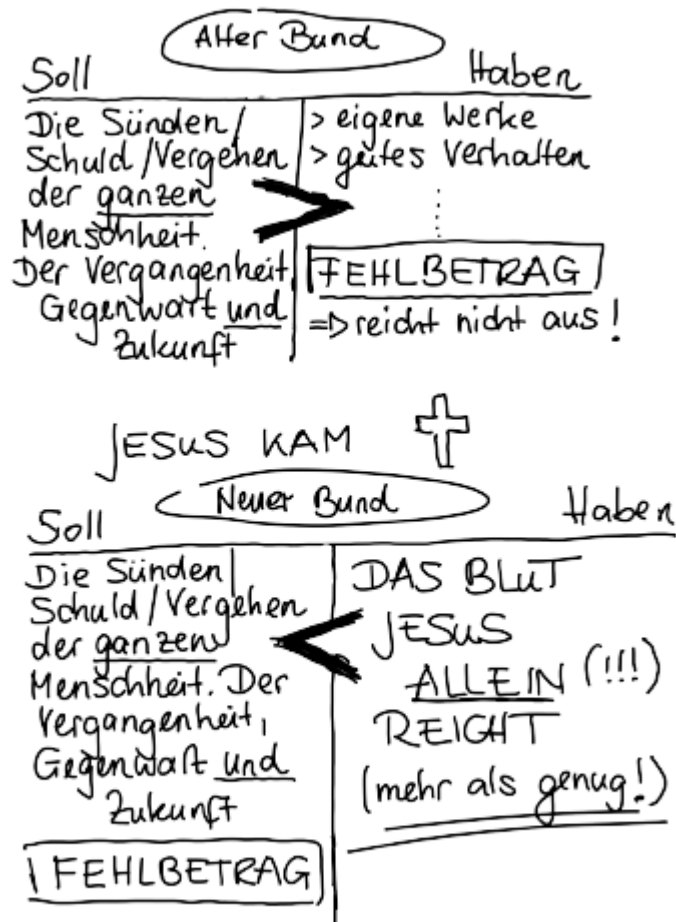 Alter Bund
Soll
Haben
Die Sünden/
Schuld/Vergehen
der ganzen
Menschheit.
Der Vergangenheit,
Gegenwart und
Zukunft
> eigene Werke
> gutes Verhalten
FEHLBETRAG
=> reicht nicht aus!
JESUS KAM
Neuer Bund
Soll
Haben
Die Sünden/
Schuld/Vergehen
der ganzen
Menschheit. Der
Vergangenheit,
Gegenwart und
Zukunft
FEHLBETRAG
DAS BLUT
JESUS
ALLEIN (!!!)
REICHT
(mehr als genug!)